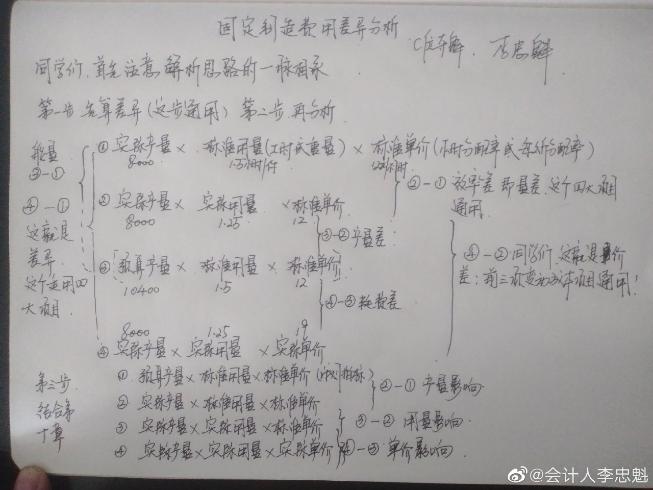 固定制造费用差异分析
同学们,首先注意解析思路的一脉相承
第一步 先算差异(这步通用) 第二步 再分析
① 实际产量 × 标准用量(工时或重量) × 标准单价(小时分配率或每斤分配率)
8000 1.5小时/件
② 实际产量 × 实际用量 × 标准单价
8000 1.25 12
③ 预算产量 × 标准用量 × 标准单价
10400 1.5 12
8000 1.25 19
④ 实际产量 × 实际用量 × 实际单价
能量
③-①
④-①
这就是
差异
这个适用四
大项目
②-① 效率差 即量差,这个四大项目
通用
③-② 产量差
④-③ 耗费差
④-② 同学们,这就是价
差:前三项变动成本项目通用!
第三步
结合第
十章
① 预算产量×标准用量×标准单价
② 实际产量×标准用量×标准单价
③ 实际产量×实际用量×标准单价
④ 实际产量×实际用量×实际单价
②-① 产量影响
③-② 用量影响
④-③ 单价影响
@会计人李忠魁